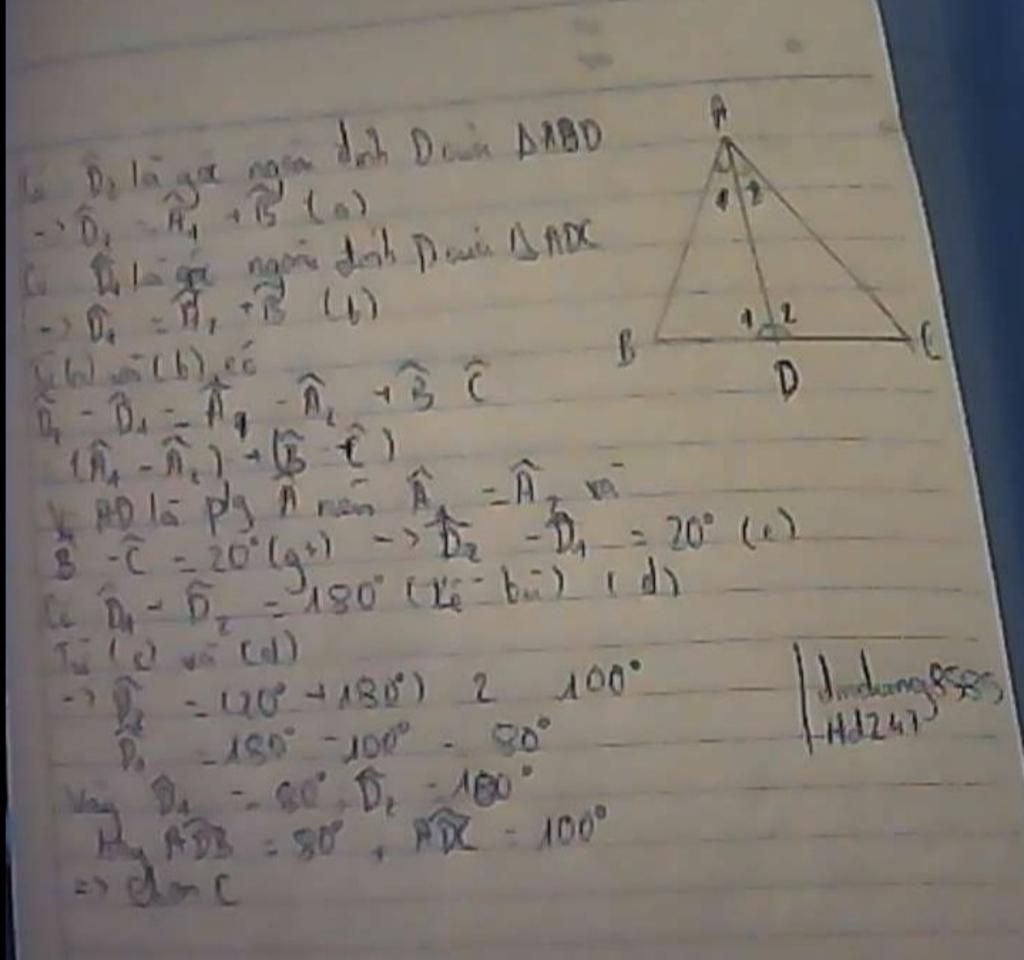 Có D̂₂ là góc ngoài đỉnh D của ΔABD
-> D̂₂ = Â₁ + B̂ (a)
Có D̂₁ là góc ngoài đỉnh D của ΔADC
-> D̂₁ = Â₂ + B̂ (b)
(a) và (b) có
D̂₂ - D̂₁ = Â₁ - Â₂ + B̂ Ĉ
(Â₁ - Â₂) + (B̂ - Ĉ)
Vì AD là p/g Â nên Â₁ = Â₂ và
B̂ - Ĉ = 20° (gt) -> D̂₂ - D̂₁ = 20° (c)
Có D̂₁ + D̂₂ = 180° (kề - bù) (d)
Từ (c) và (d)
-> D̂₂ = (20° + 180°) 2 100°
D̂₁ = 180° - 100° = 80°
Vậy D̂₁ = 80°, D̂₂ = 100°
Hay ADB = 80°, ADC = 100°
=> chọn C
A
1 2
1 2
B C
D
8585
Hd247